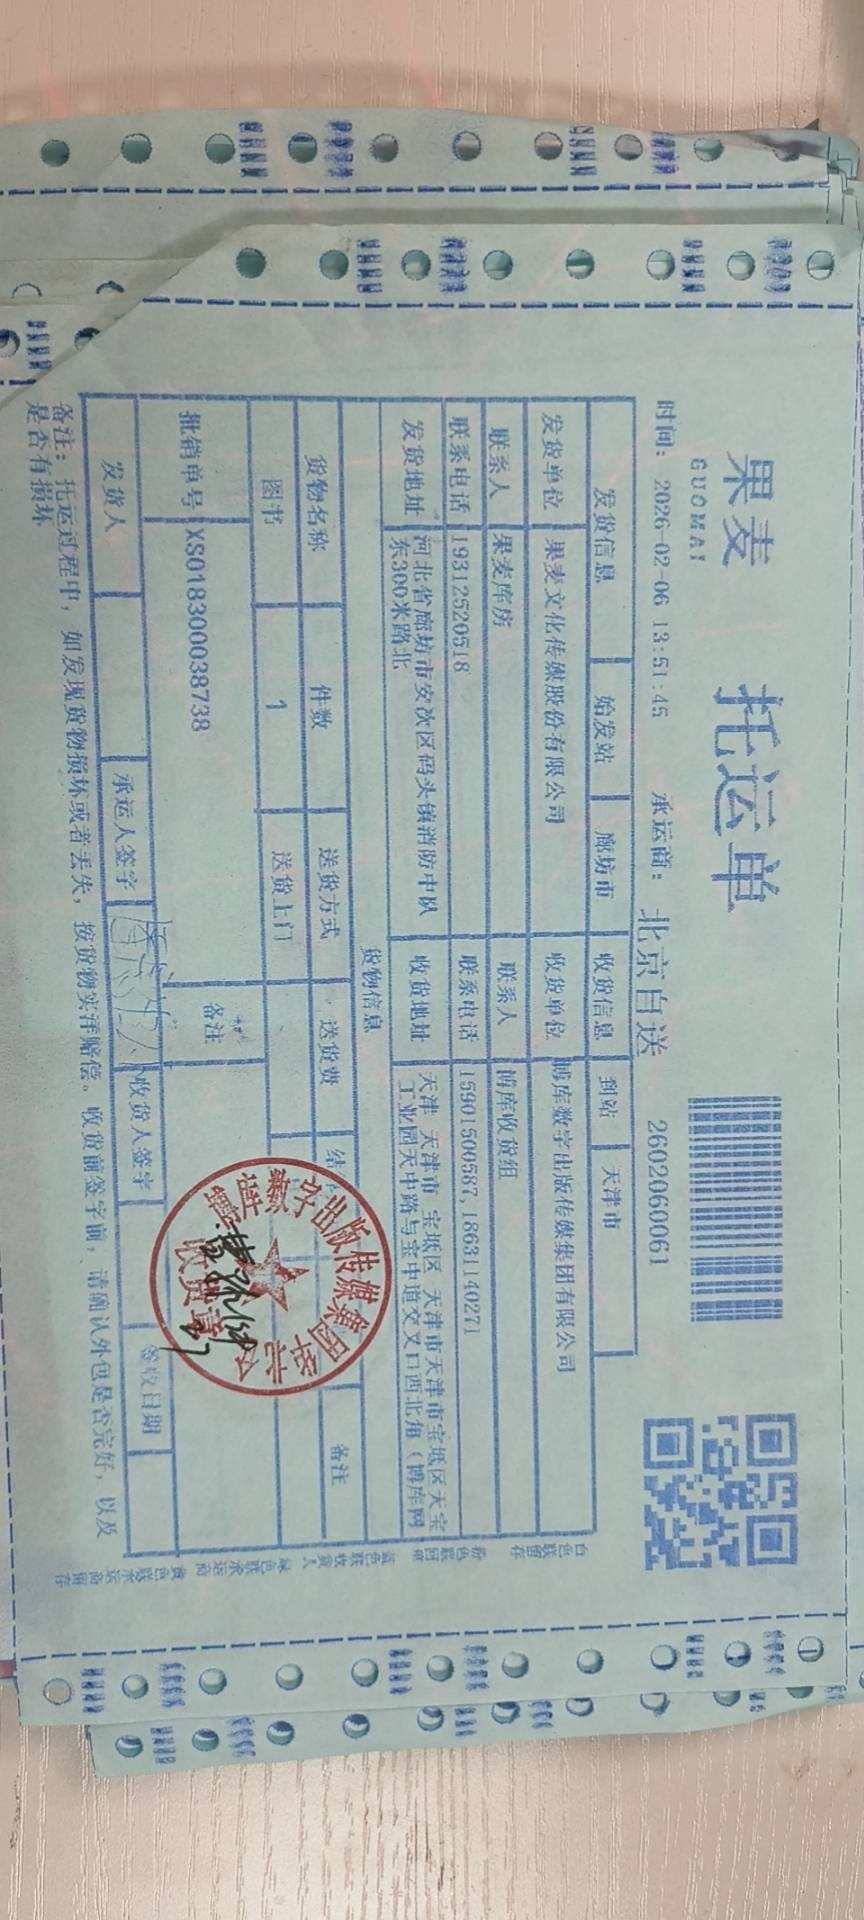 果麦
GUOMAI
托运单
时间: 2026-02-06 13:51:45 承运商: 北京自送 2602060061
发货信息 始发站 廊坊市 收货信息 到站 天津市
发货单位 果麦文化传媒股份有限公司 收货单位 博库数字出版传媒集团有限公司
联系人 果麦库房 联系人 博库收货组
联系电话 19312520518 联系电话 15901500587,18631140271
发货地址 河北省廊坊市安次区码头镇消防中队东300米路北 收货地址 天津 天津市 宝坻区 天津市天津市宝坻区天宝工业园天中路与宝中道交叉口西北角（博库网
货物信息
货物名称 件数 送货方式 送货费 结 备注
图书 1 送货上门
批销单号 XS018300038738 备注
发货人 承运人签字 收货人签字 签收日期
备注: 托运过程中, 如发现货物损坏或者丢失, 按货物实洋赔偿。收货前签字前, 请确认外包是否完好, 以及
是否有损坏
博库数字出版传媒集团
收货章
白色联留存 粉色联回单 蓝色联收货人 绿色联承运商 黄色联承运商留存